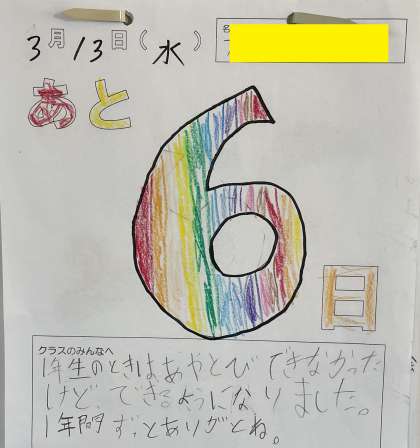 3月13日(水)
あと
6
日
クラスのみんなへ
1年生のときはあやとびできなかった
けど、できるようになりました。
1年間ずっとありがとね。